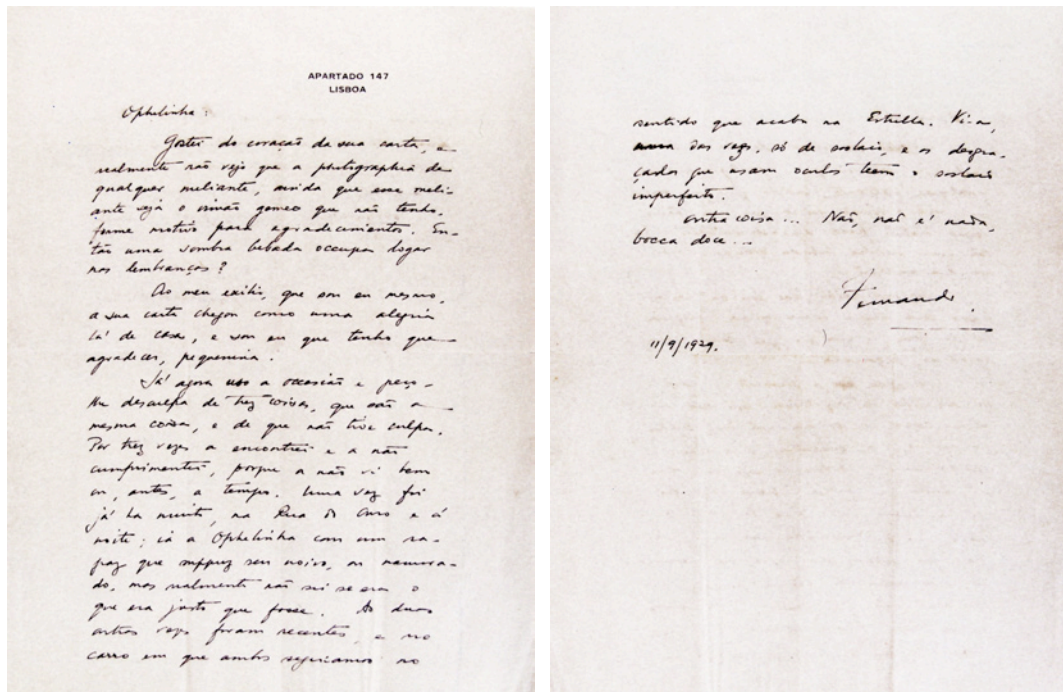 APARTADO 147
LISBOA
Ophelinha:
Gostei do coração da sua carta, e
realmente não vejo que a photographia de
qualquer meliante, ainda que esse meli-
ante seja o irmão gemeo que não tenho,
forme motivo para agradecimentos. En-
tão uma sombra bebada occupa logar
nas lembranças?
Ao meu exilio, que sou eu mesmo,
a sua carta chegou como uma alegria
lá de casa, e sou eu que tenho que
agradecer, pequenina.
Já agora uso a occasião e peço-
lhe desculpa de trez coisas, que são a
mesma coisa, e de que não tive culpa.
Por trez vezes a encontrei e a não
cumprimentei, porque a não vi bem
ou, antes, a tempo. Uma vez foi
já ha muito, na Rua do Ouro e á
noite; ia a Ophelinha com um ra-
paz que suppuz seu noivo, ou namora-
do, mas realmente não sei se era o
que era justo que fosse. As duas
outras vezes foram recentes, e no
carro em que ambos seguiamos no
sentido que acaba na Estrella. Vi-a,
uma das vezes, só de soslaio, e os desgra-
çados que usam oculos teem o soslaio
imperfeito.
Outra coisa... Não, não é nada,
bocca doce...
Fernando.
11/9/1929.